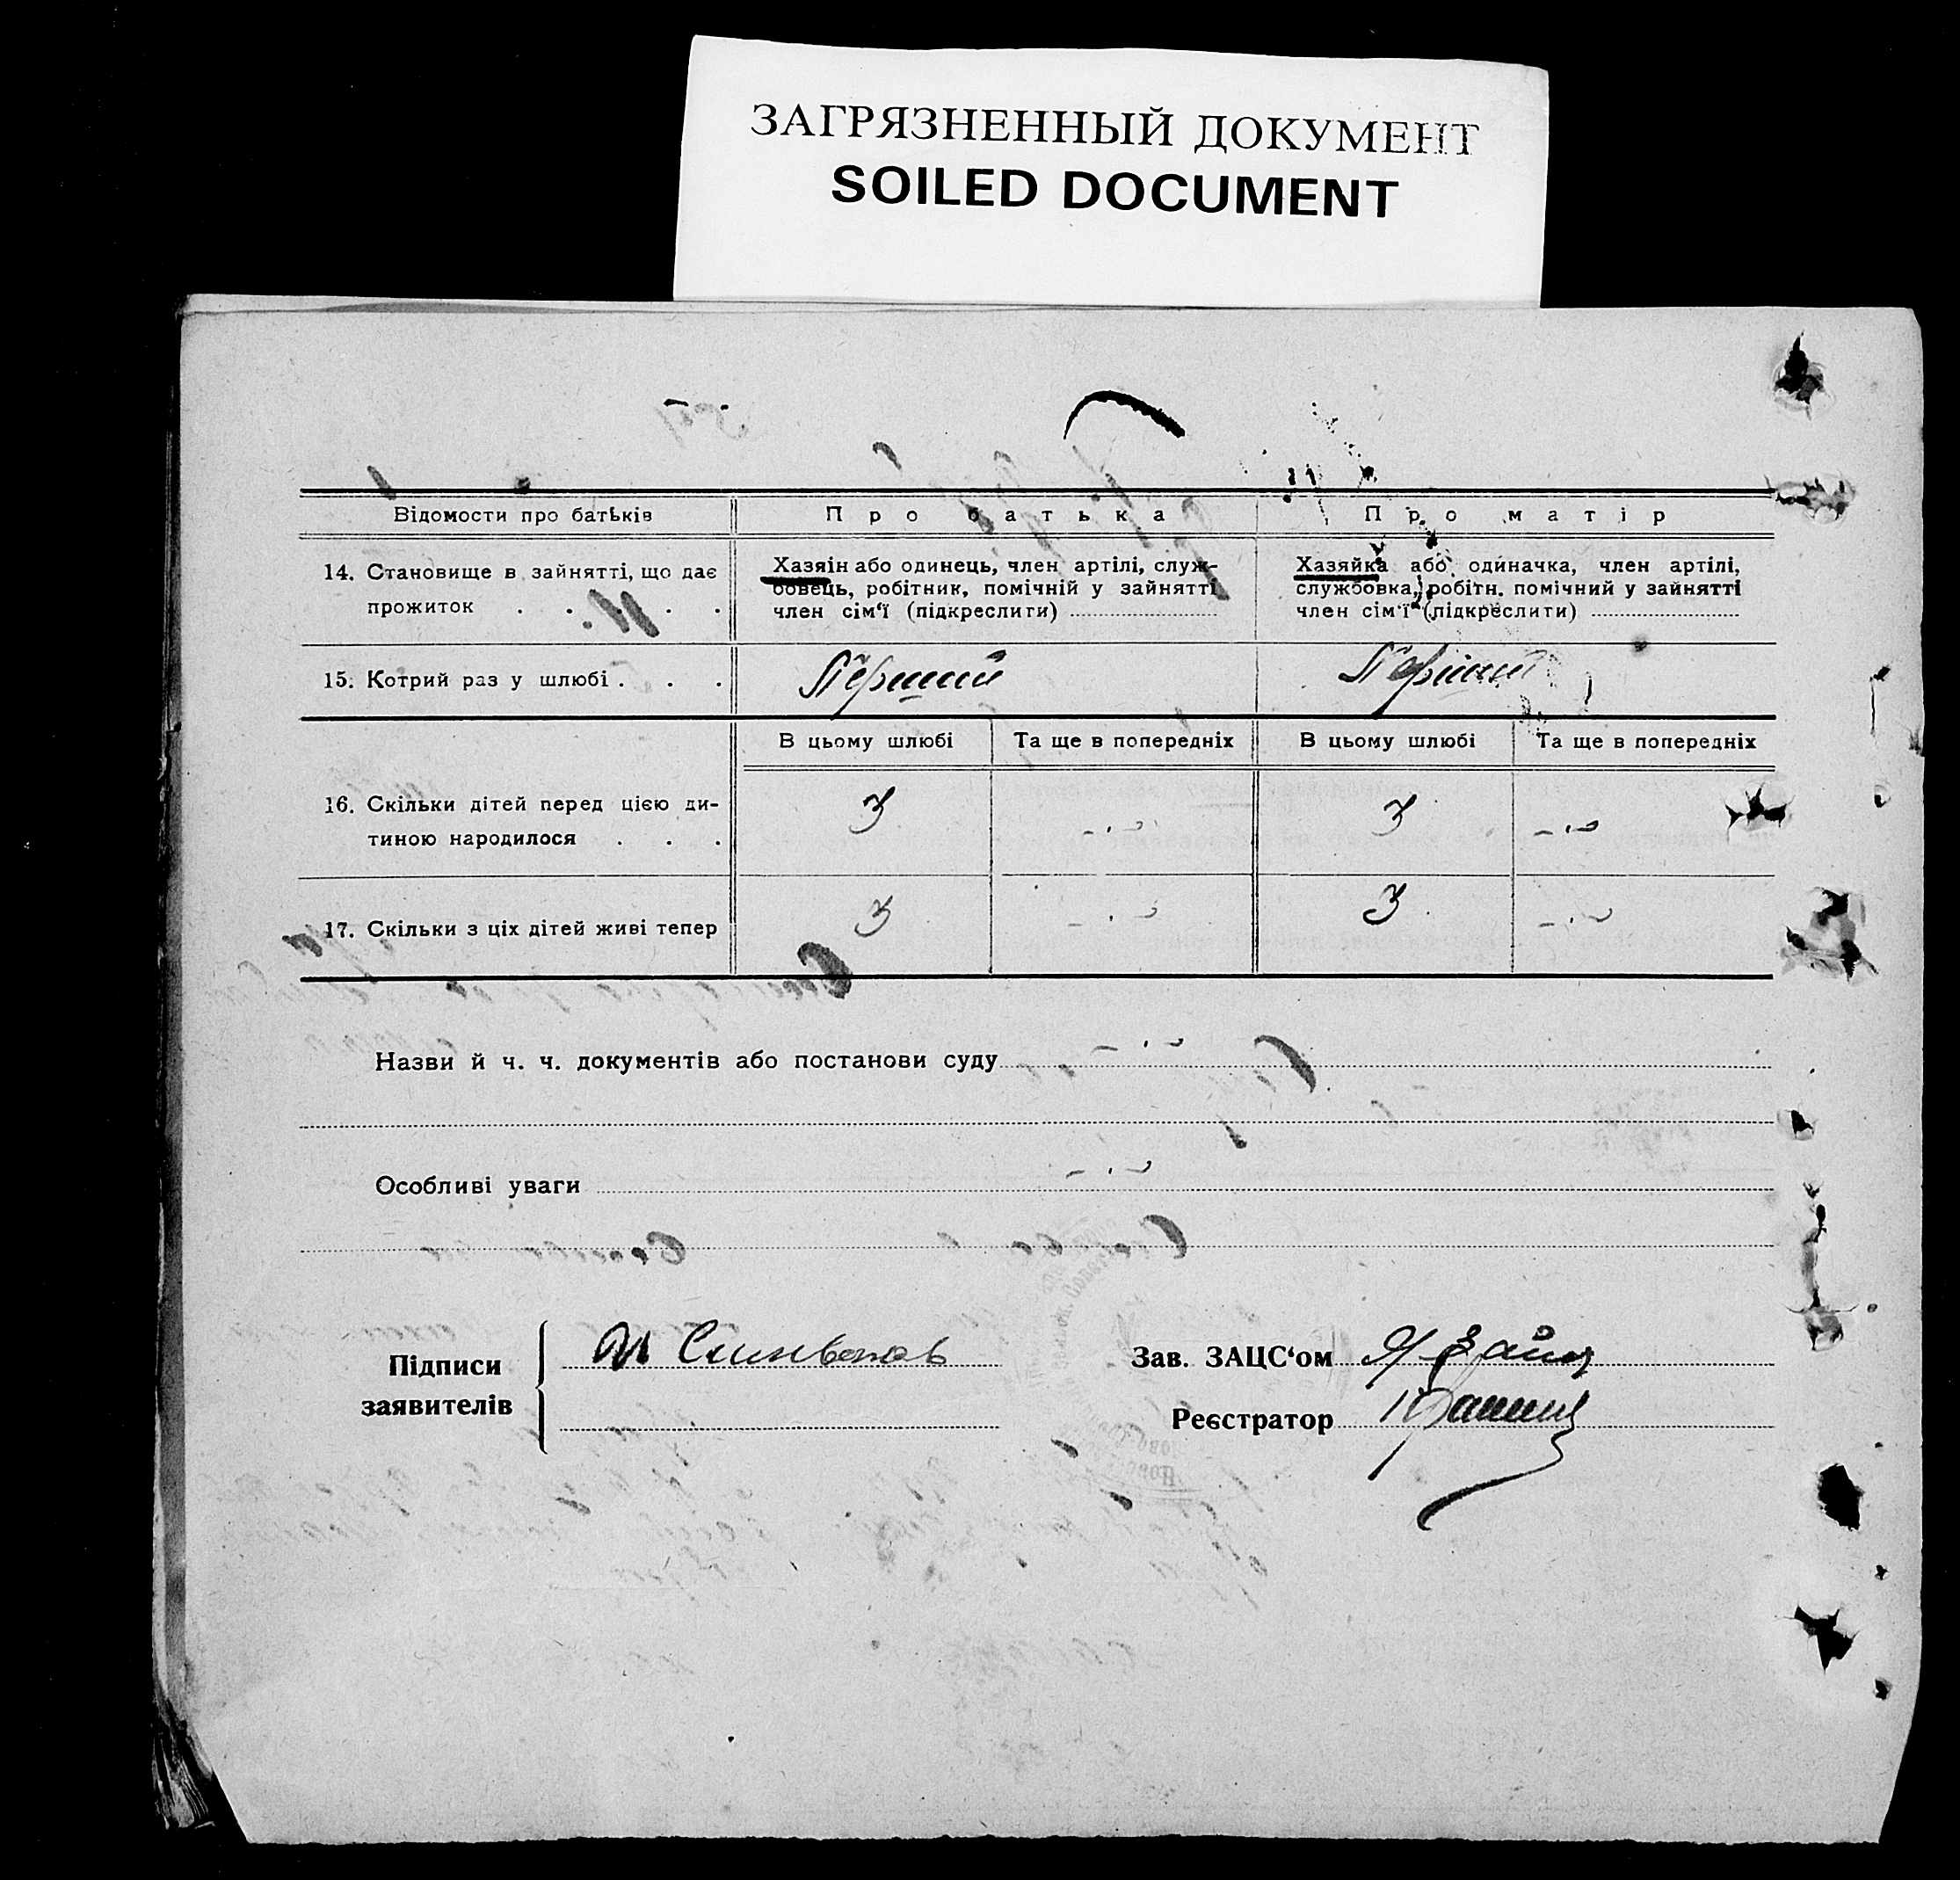 ЗАГРЯЗНЕННЫЙ ДОКУМЕНТ
SOILED DOCUMENT
Відомости про батьків
Про батька
Про матір
14. Становище в зайнятті, що дає
прожиток . . . . .
Хазяін або одинець, член артілі, служ-
бовець, робітник, помічній у зайнятті
член сім‘ї (підкреслити)
Хазяйка або одиначка, член артілі,
службовка, робітн. помічний у зайнятті
член сім‘ї (підкреслити)
15. Котрий раз у шлюбі . . .
Перший
Перший
В цьому шлюбі
Та ще в попередніх
В цьому шлюбі
Та ще в попередніх
16. Скільки дітей перед цією ди-
тиною народилося . . .
3
3
17. Скільки з ціх дітей живі тепер
3
3
Назви й ч. ч. документів або постанови суду
Особливі уваги
Підписи
заявителів
Зав. ЗАЦС‘ом
Реєстратор